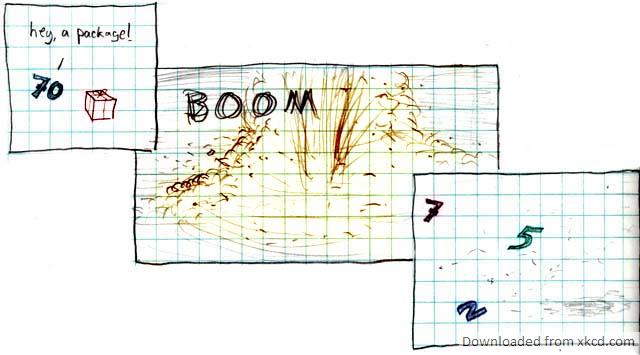 hey, a package!
70
BOOM
7
5
2
Downloaded from xkcd.com